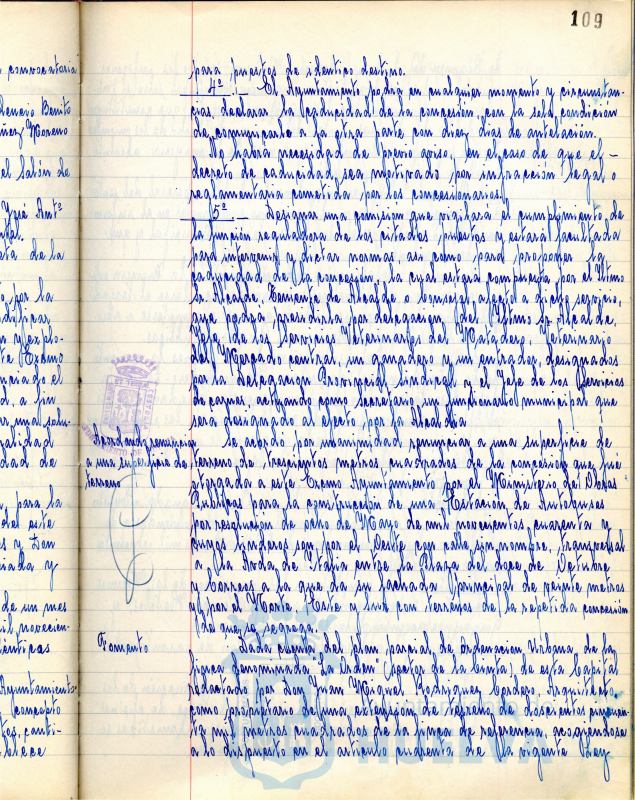 109
convocatoria
Benito
Moreno
el Salón de
Antº
ta de la
por la
Excmo
el
d, a fin
dad de
para la
del este
s y Don
y
de un mes
Ayuntamiento
concepto
para puestos de identico destino.
4º.- El Ayuntamiento podrá en cualquier momento y circunstan-
cias, declarar la caducidad de la concesión, con la sola condición
de comunicarlo a la otra parte con diez días de antelación.
No habrá necesidad de previo aviso, en el caso de que el-
decreto de caducidad, sea motivado por infracción legal o
reglamentaria cometida por los concesionarios.
5º.- Designar una comision que vigilará el cumplimiento, de
la función reguladora de los citados puestos y estará facultada
para intervenir y dictar normas, asi como para proponer la
caducidad de la concesión, la cual estará compuesta por el Iltmo
Sr. Alcalde, Teniente de Alcalde o Concejal, afecto a dicho servicio,
que podrá presidirla por delegacion del Iltmo Sr. Alcalde,
Jefe de los Servicios Veterinarios del Matadero, Veterinario
del Mercado central, un ganadero y un entrador, designados
por la Delegacion Provincial Sindical y el Jefe de los Servicios
de carnes, actuando como Secretario un funcionario municipal que
sera designado al efecto por la Alcaldía
Acordando renuncia
a una superficie de
terreno
Se acordó por unanimidad renunciar a una superficie de
terreno de trescientos metros cuadrados de la concesión que fué
otorgada a este Excmo Ayuntamiento por el Ministerio de Obras
Publicas para la construccion de una Estación de Autobuses
por resolucion de ocho de Mayo de mil novecientos cuarenta y
cuyos linderos son por el Oeste con calle sin nombre, transversal
a la Avda de Italia entre la Plaza del doce de Octubre
y Correos a la que da su fachada principal de veinte metros
y por el Norte, Este y Sur con terrenos de la repetida concesión
de que se segrega.
Fomento
Dada cuenta del plan parcial de Ordenacion Urbana de la
finca denominada "La Orden" (Sector de la Cinta) de esta Capital
redactado por Don Juan Miguel Rodriguez Cordero, Arquitecto,
como propietario de una extension de terreno de doscientos cincuen-
ta mil metros cuadrados de la finca de referencia, acogiendose
a lo dispuesto en el articulo cuarenta de la vigente Ley
HUELVA